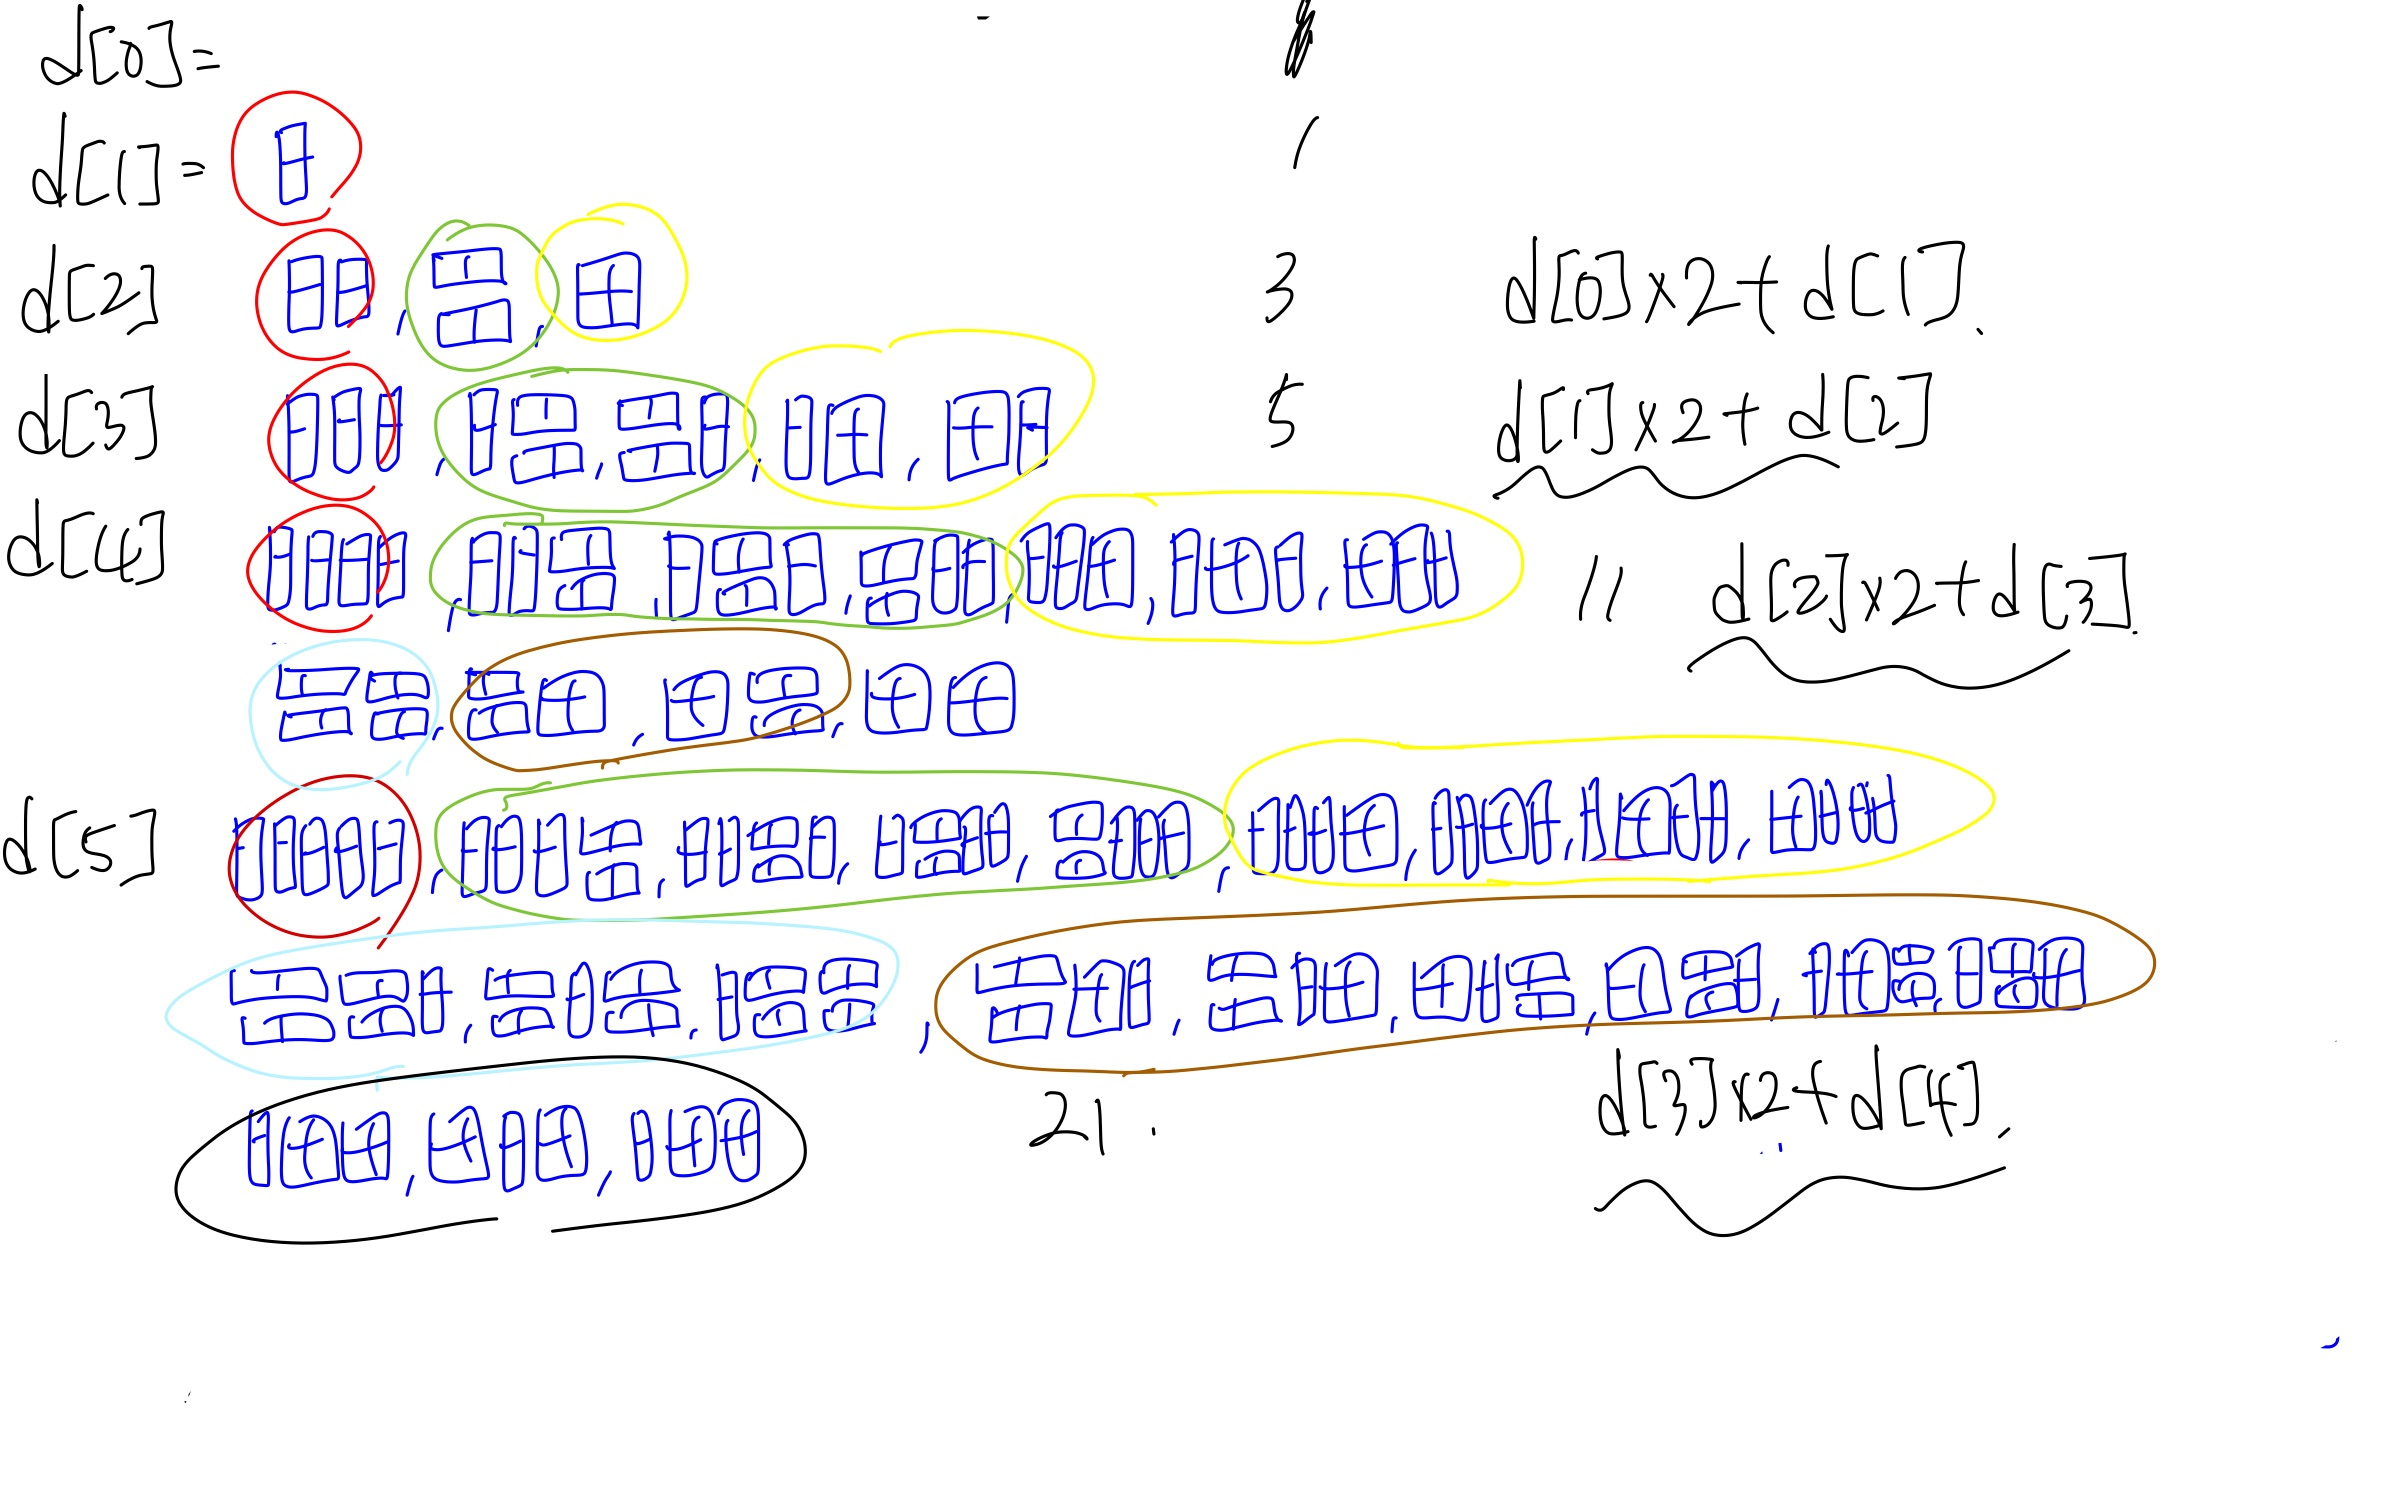 d[0]=
d[1]= 1
d[2] , , 3 d[0]x2+d[1].
d[3] , , , , 5 d[1]x2+d[2]
d[4] , , , , , , 11 d[2]x2+d[3].
, , ,
d[5] , , , , , , ,
, , , , , , , ,
, , 21. d[3]x2+d[4].